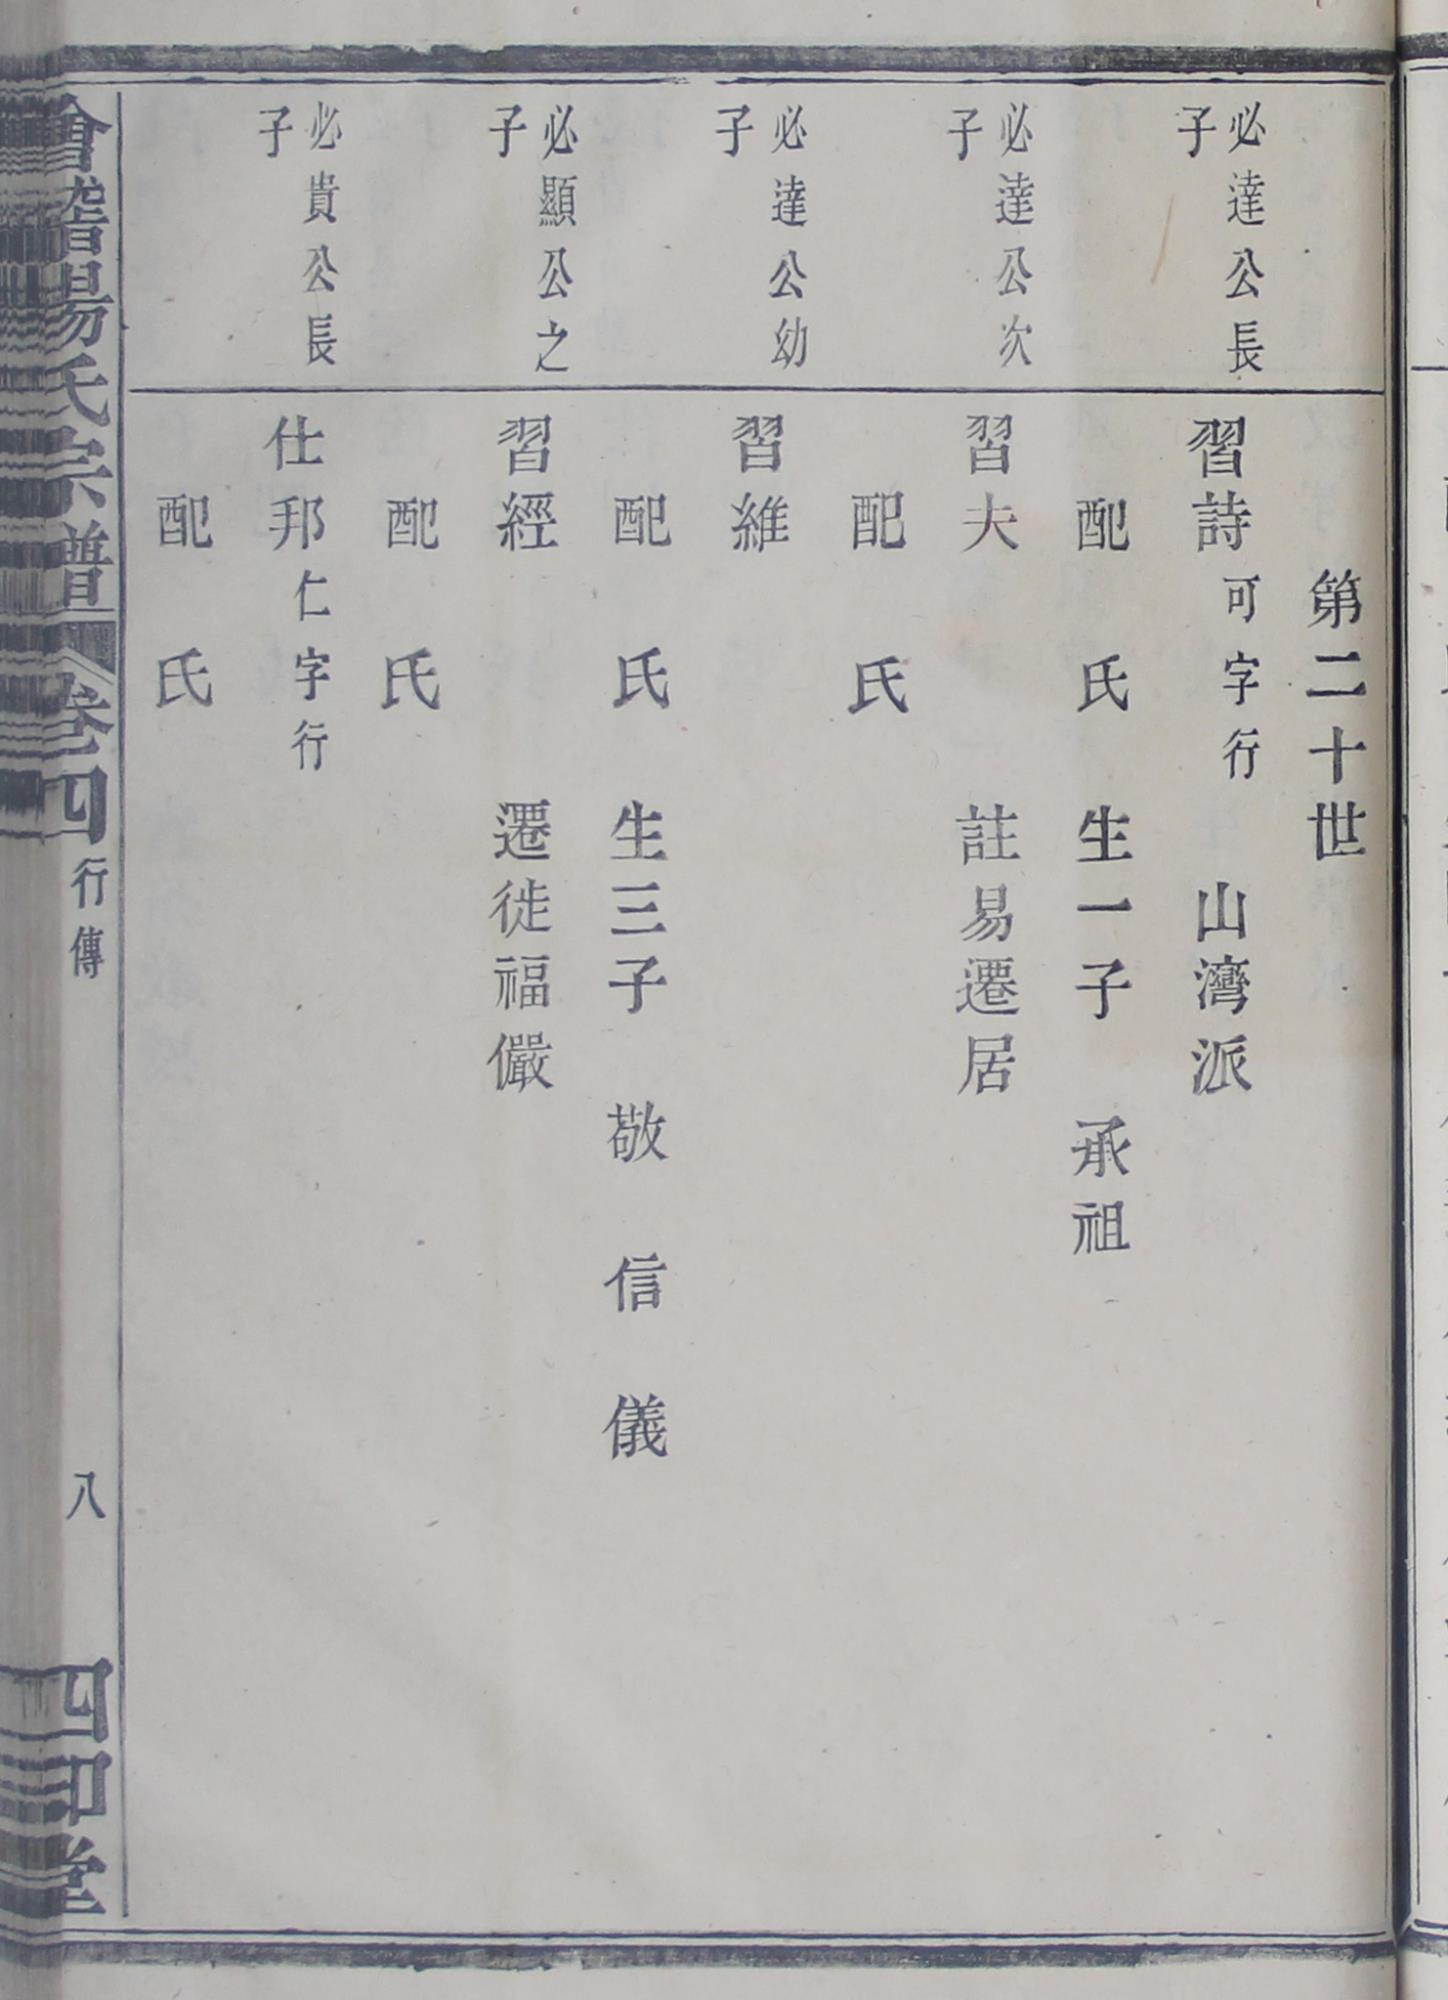 第二十世
必達公長
子
習詩可字行 山灣派
配 氏 生一子 承祖
必達公次
子
習夫 註易遷居
配 氏
必達公幼
子
習維
配 氏 生三子 敬 信 儀
必顯公之
子
習經 遷徙福儼
配 氏
必貴公長
子
仕邦仁字行
配 氏
會稽楊氏宗譜 卷四 行傳 八 四印堂